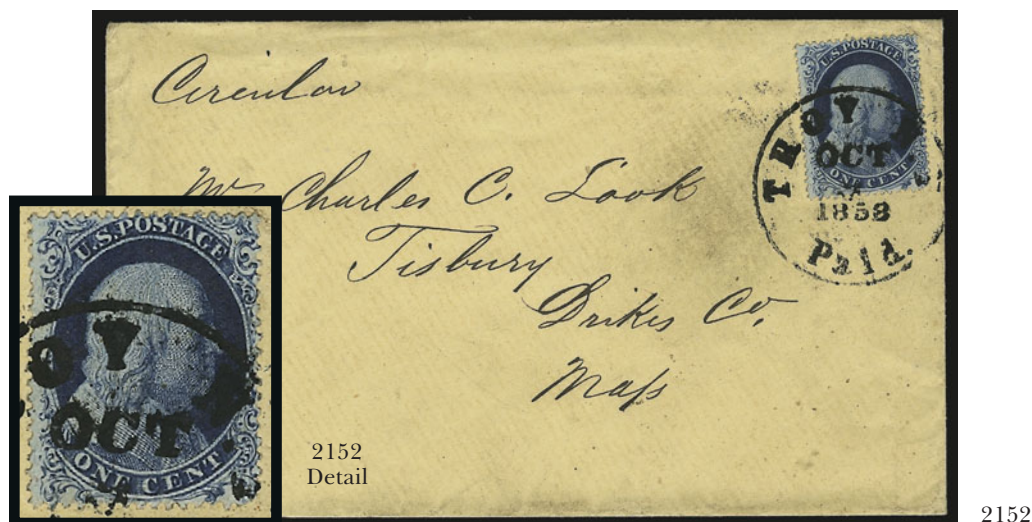 Circular
U.S. POSTAGE
ONE CENT.
TROY
OCT
1858
Paid.
Mr Charles C. Look
Tisbury
Dukes Co.
Mass
U.S. POSTAGE
OY
OCT
ONE CENT.
2152
Detail
2152